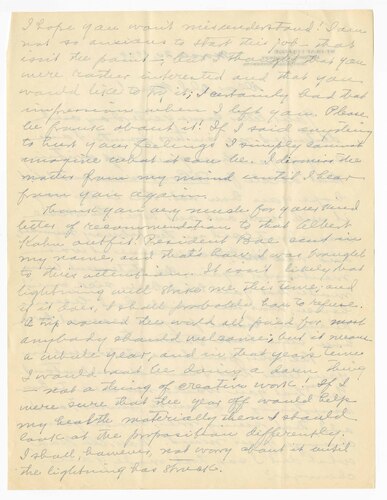 I hope you won't misunderstand! I am
not so anxious to start this job - that
isn't the point, but I thought that you
were rather interested and that you
would like to try it; I certainly had that
impression when I left you. Please
be frank about it! If I said anything
to hurt your feelings I simply cannot
imagine what it can be. I dismiss the
matter from my mind until I hear
from you again.
Thank you very much for your kind
letter of recommendation to that Albert
Kahn outfit! President sent in
my name, and that's how I was brought
to their attention. It isn't likely that
lightning will strike me, this time, and
if it does, I shall probably have to refuse.
A trip around the world all paid for, most
anybody should welcome; but it means
a whole year, and in that year's time
I would not be doing a darn thing
— not a thing of creative work! If I
were sure that the year off would help
my health materially then I should
look at the proposition differently.
I shall, however, not worry about it until
the lightning has struck.